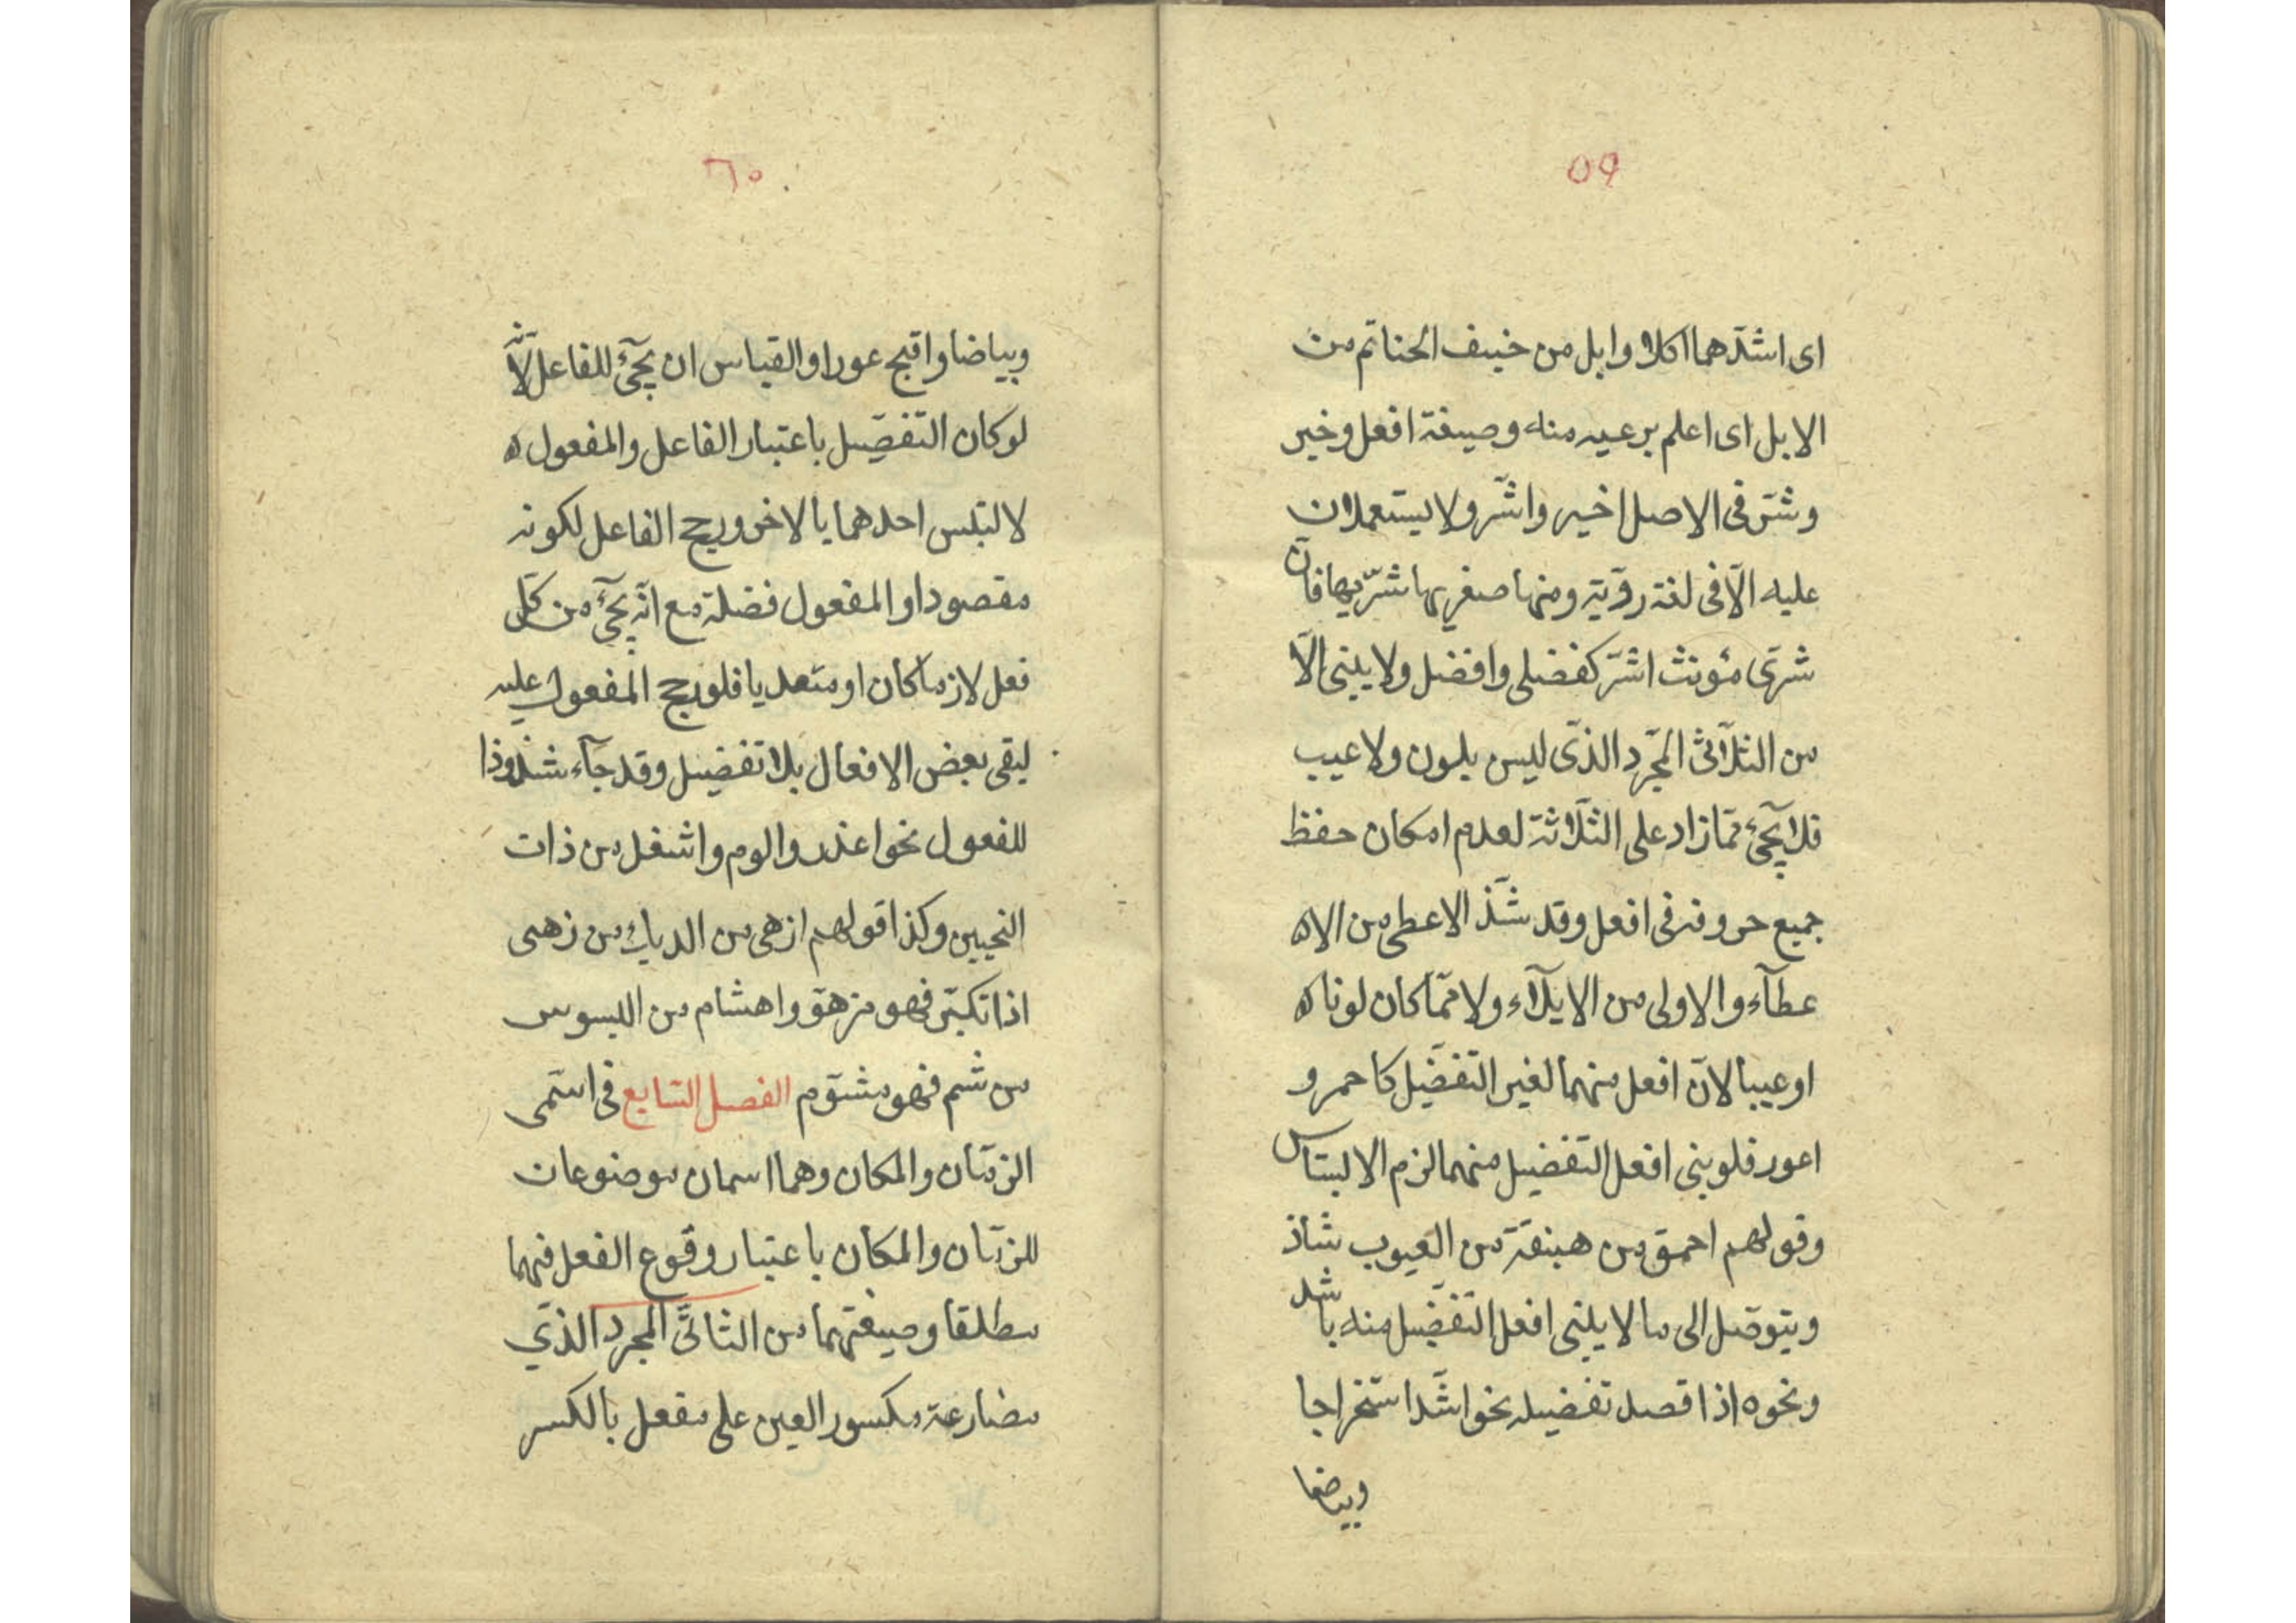 ٥٩
اى اشدّهما اكلا وابل من خيىف الحناتم من
الابل اى اعلم برعيه منه وصيغة افعل وخير
وشرّ فى الاصل اخير واشرّ ولا يستعملان
عليه الّا فى لغة رؤية ومنها صغريها شرّيها فانّ
شرّى مؤنث اشرّ كفضلى وافضل ولا يبنى الّا
من الثلاثىّ المجرّد الذّى ليس بلون ولا عيب
فلا يجئ ممّا زاد على الثلاثة لعدم امكان حفظ
جميع حروفه فى افعل وقد شذّ الاعطى من الاه
عطآء والاولى من الايلآء ولا ممّا كان لوناه
او عيبا لانّ افعل منهما لغير التّفضيل كاحمر و
اعور فلو بنى افعل التفضيل منهما لزم الالبتاس
وقولهم احمق من هبنقة من العيوب شاذ
ويتوصّل الى ما لا يبنى افعل التّفضيل منه باشد
ونحوه اذا قصد تفضيله نحو اشدّ استخراجا
وبياضا
٦٠
وبياضا واقبح عورا والقياس ان يجئ للفاعل لانّه
لو كان التفضيل باعتبار الفاعل والمفعول ه
لالتبس احدهما بالاخر ورجح الفاعل لكونه
مقصودا والمفعول فضلة مع انّه يجئ من كلّ
فعل لازما كان او متعديا فلو رجح المفعول عليه
لبقى بعض الافعال بلا تفضيل وقد جآء شذوذا
للفعول نحو اعذر والوم واشغل من ذات
النحيين وكذا قولهم ازهى من الديك من زهى
اذا تكبّر فهو مزهوّ واهشام من البسوس
من شم فهو مشؤم الفصل السّابع فى اسمى
الزمان والمكان وهما اسمان موضوعان
للزمان والمكان باعتبار وقوع الفعل فيهما
مطلقا وصيغتهما من الثاثىّ المجرد الذّى
مضارعة مكسور العين على مفعل بالكسر